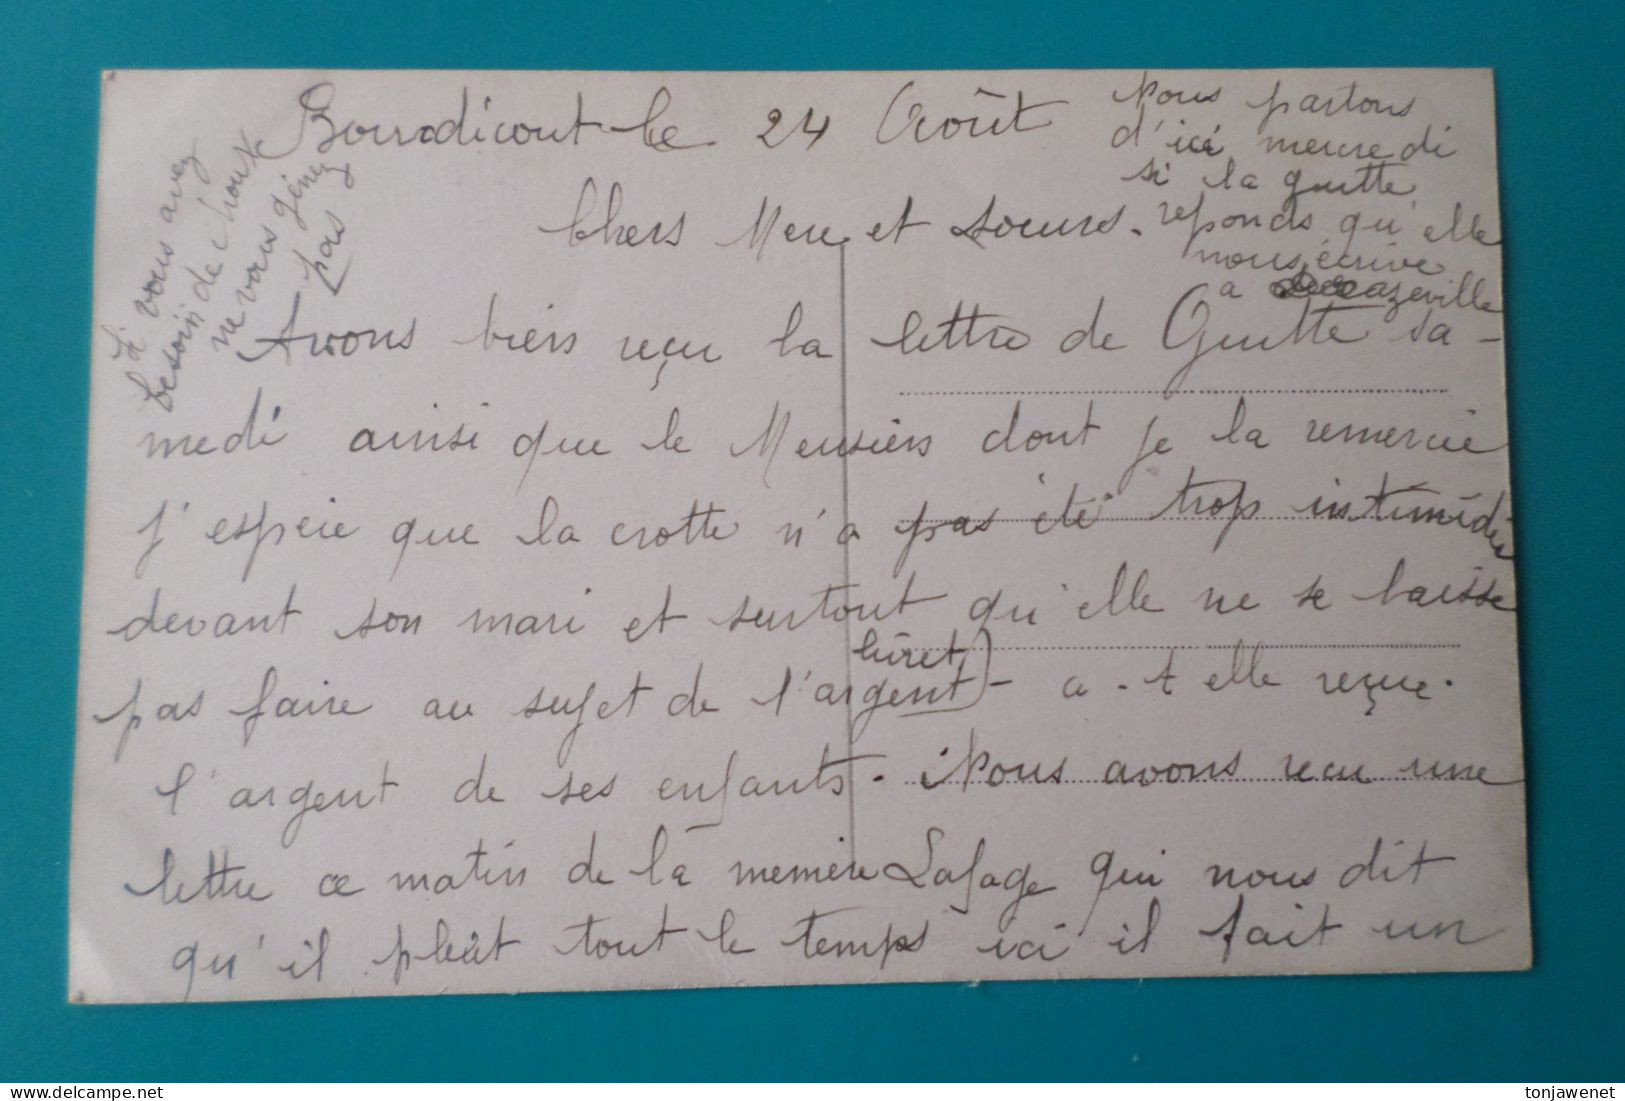 Bourdicout le 24 Août
Chers Mere et soeurs.
Avons bien reçu la lettre de Guitte sa-
medi ainsi que le Mensiers dont je la remercie
j'espere que la crotte n'a pas été trop intimidée
devant son mari et surtout qu'elle ne se laisse
pas faire au sujet de l'argent - a-t elle reçue
livret
l'argent de ses enfants. Nous avons recu une
lettre ce matin de la memère Lafage qui nous dit
qu'il pleût tout le temps ici il fait un
Nous partons
d'ici mercredi
si la guitte
reponds qu'elle
nous écrive
a Decazeville
Si vous avez
besoin de choux
ne vous génez
pas
tonjawenet